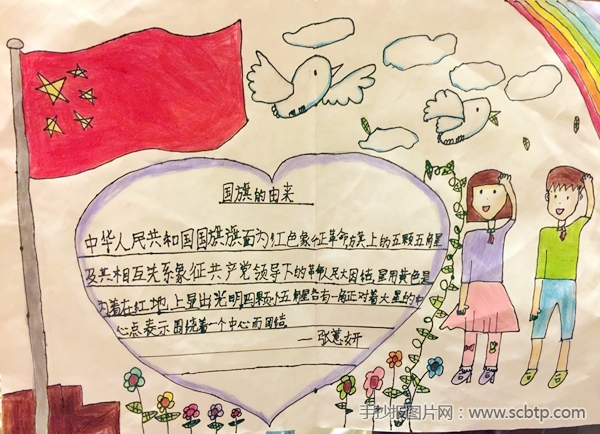 国旗的由来
中华人民共和国国旗旗面为红色象征革命旗上的五颗五角星
及其相互关系象征共产党领导下的革命人民大团结,星用黄色是
为着在红地上显出光明四颗小五角星各有一角正对着大星的中
心点表示围绕着一个中心而团结
—张蕙妍
手抄报图片网:www.scbtp.com